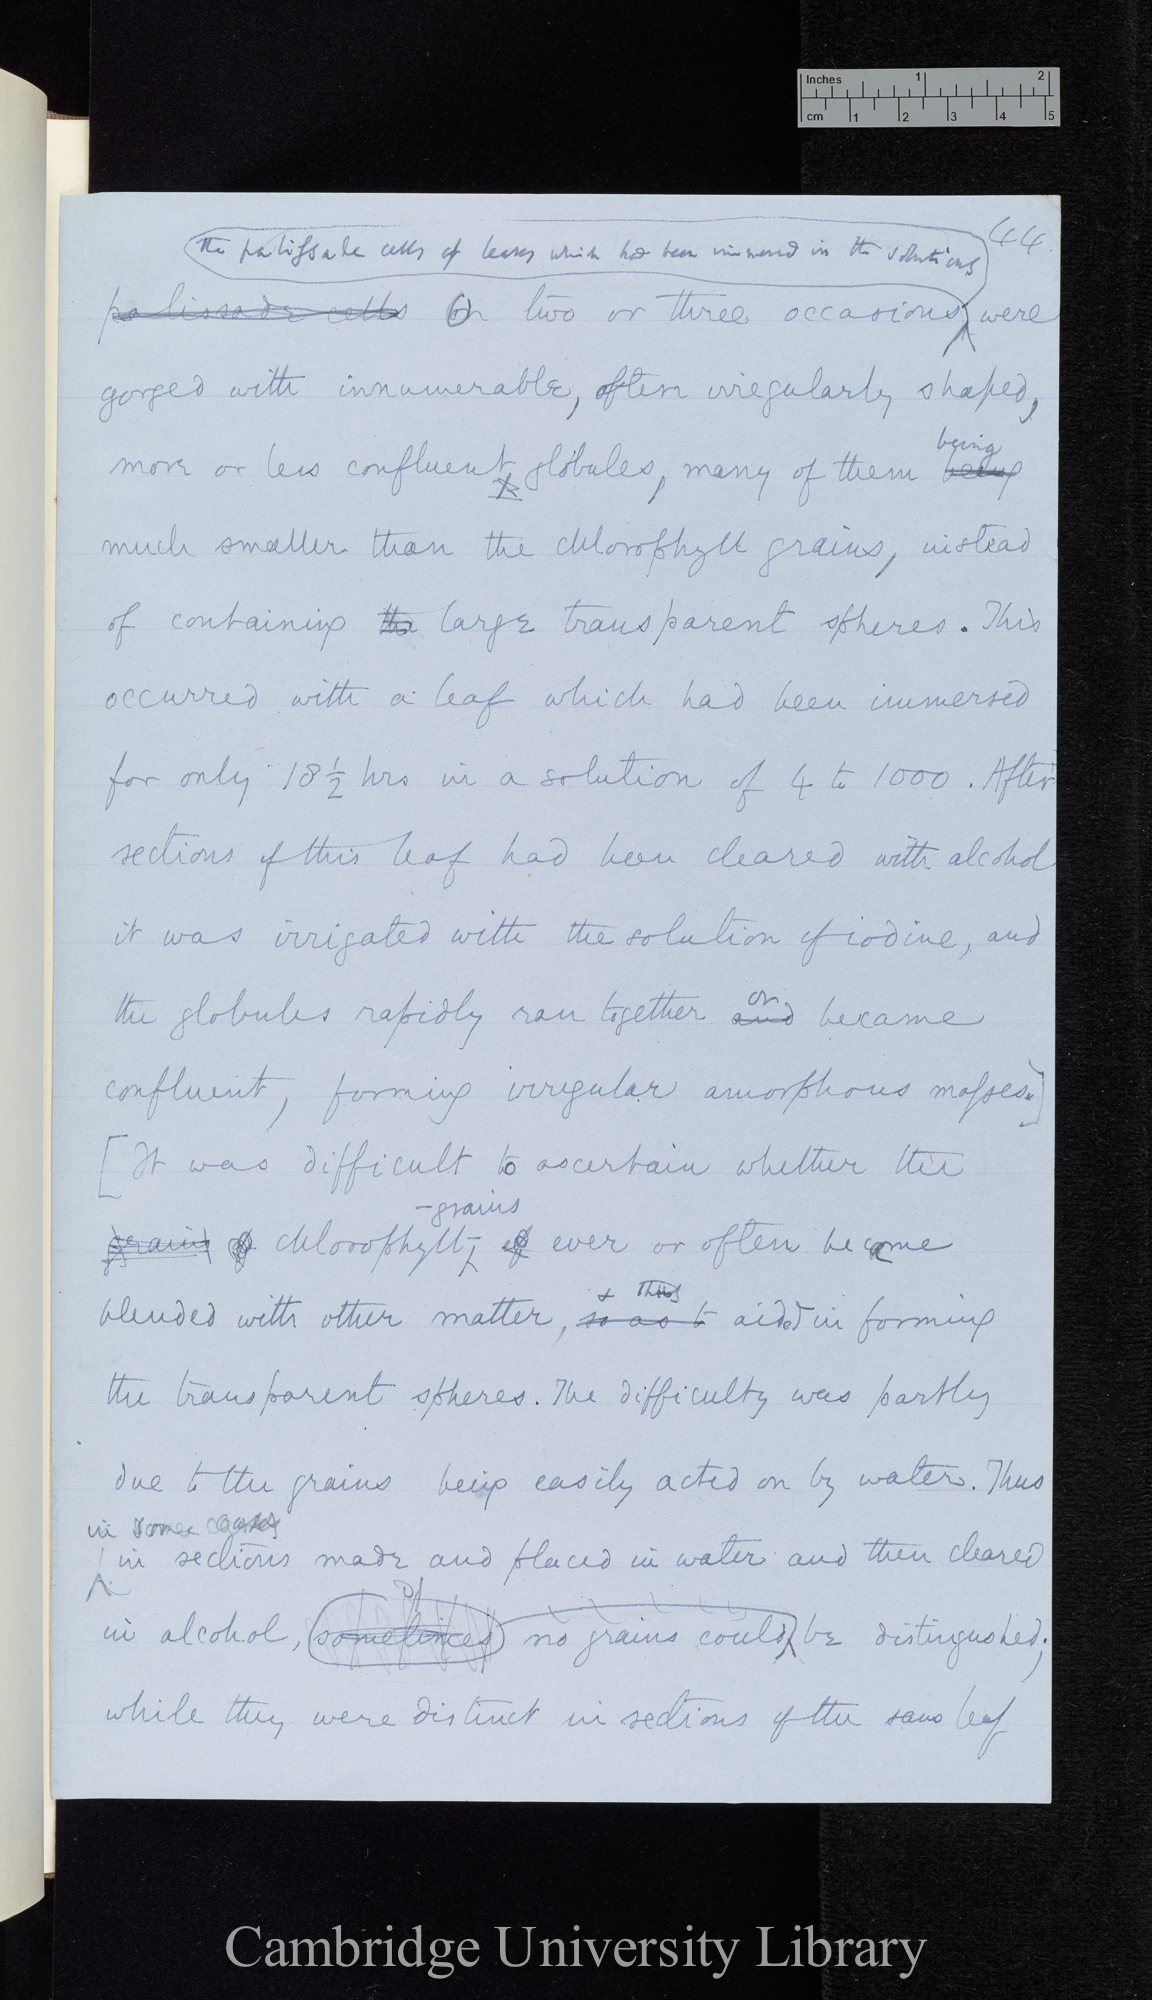 Inches 1 2
cm 1 2 3 4 5
44.
the palissade cells of leaves which had been immersed in the solutions
palissade cells On two or three occasions were
gorged with innumerable, often irregularly shaped,
being
more or less confluent, globules, many of them
much smaller than the chlorophyll grains, instead
of containing the large transparent spheres. This
occurred with a leaf which had been immersed
for only 18 1/2 hrs in a solution of 4 to 1000. After
sections of this leaf had been cleared with alcohol
it was irrigated with the solution of iodine, and
or
the globules rapidly ran together and became
confluent, forming irregular amorphous masses.]
[It was difficult to ascertain whether the
-grains
grains of chlorophyll ever or often become
& thus
blended with other matter, so as to aided in forming
the transparent spheres. The difficulty was partly
due to the grains being easily acted on by water. Thus
in some cases
in sections made and placed in water and then cleared
in alcohol, sometimes no grains could be distinguished;
while they were distinct in sections of the same leaf
Cambridge University Library